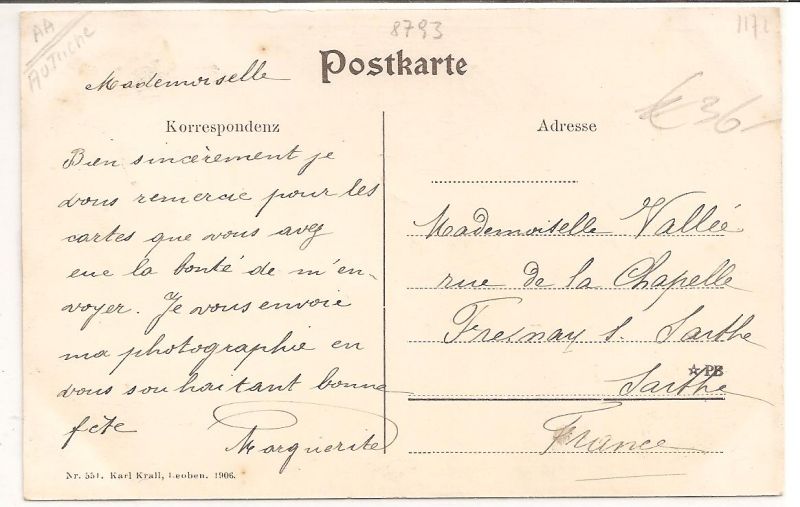 AA
AUTRICHE
8793
1172
Postkarte
Mademoiselle
Korrespondenz
Bien sincèrement je
vous remercie pour les
cartes que vous avez
eue la bonté de m'en-
voyer. Je vous envoie
ma photographie en
vous souhaitant bonne
fête
Marguerite
Nr. 551. Karl Krall, Leoben. 1906.
Adresse
36-
Mademoiselle Vallée
rue de la Chapelle
Fresnay s. Sarthe
☆PB
Sarthe
France